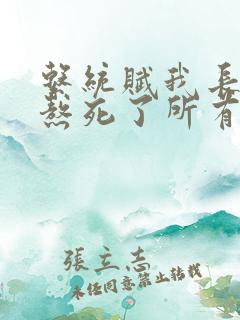 繫統賦我長
熬死了所有
張立志
未经同意禁止转载